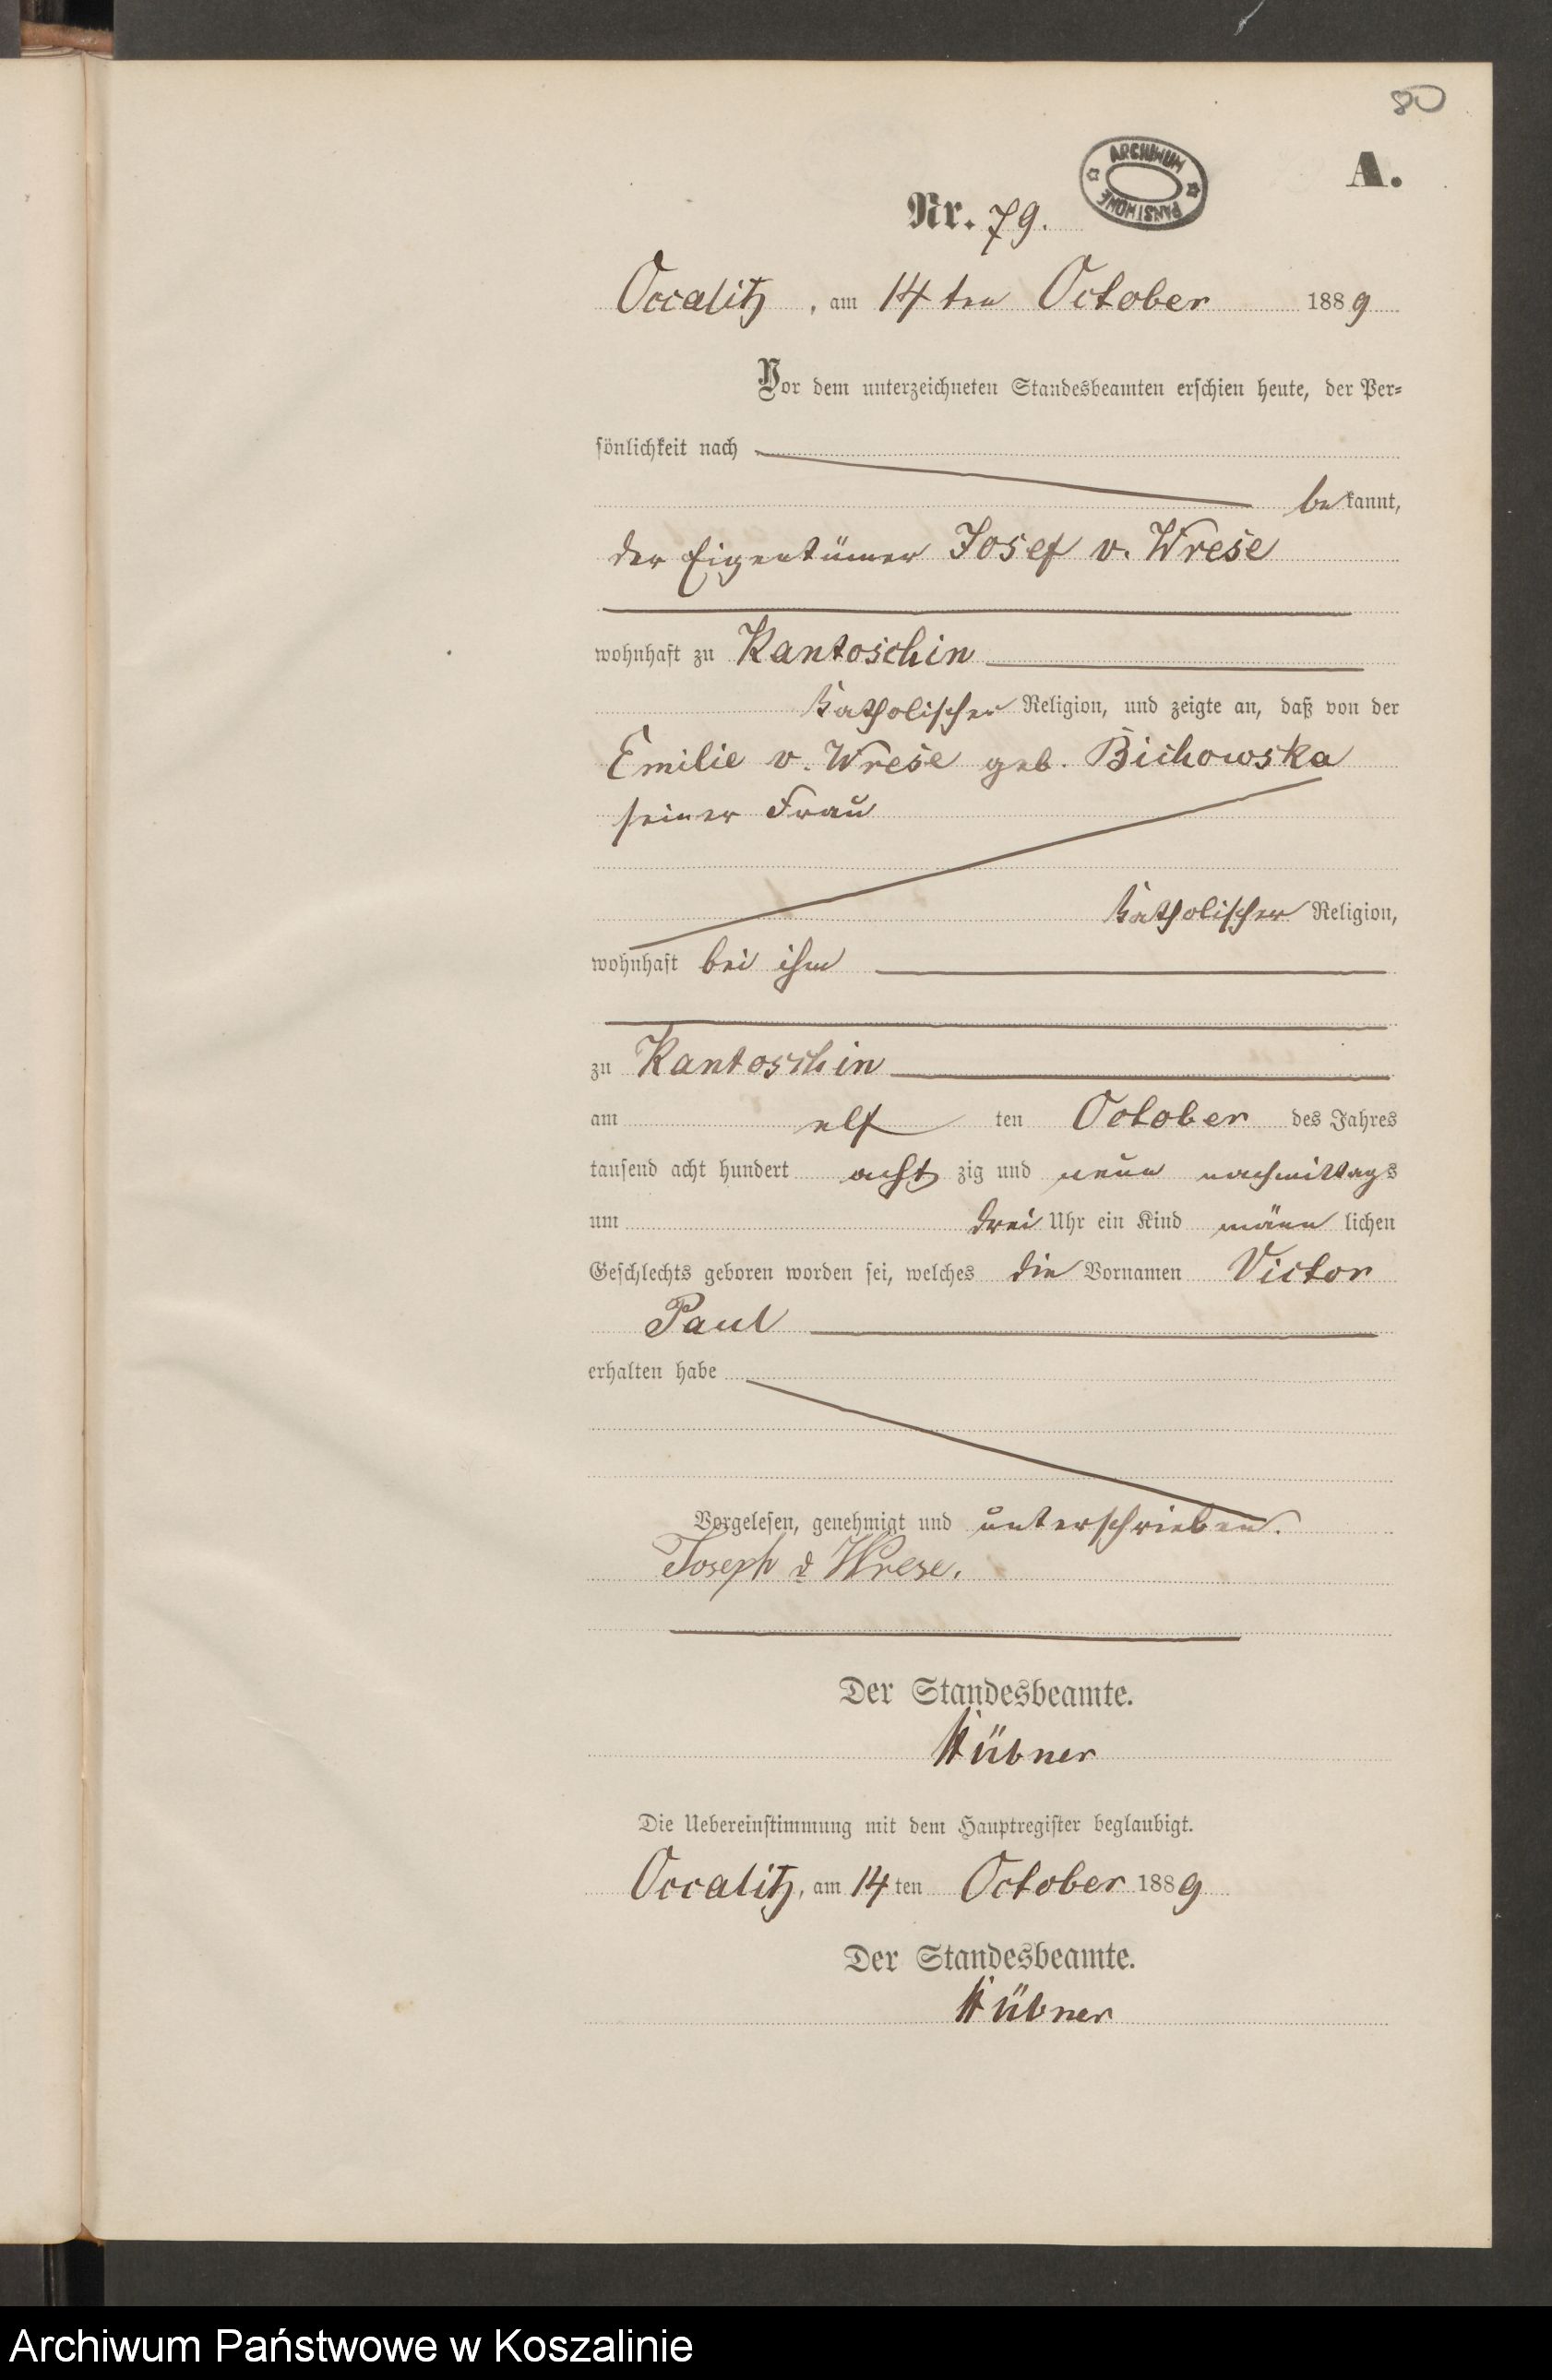 80
A.
ARCHIWUM PAŃSTWOWE
Nr. 79.
Occalitz, am 14 ten October 1889
Vor dem unterzeichneten Standesbeamten erschien heute, der Per-
sönlichkeit nach
bekannt,
der Eigentümer Josef v. Wrese
wohnhaft zu Kantoschin
katholischer Religion, und zeigte an, daß von der
Emilie v. Wrese geb. Bichowska
seiner Frau
katholischer Religion,
wohnhaft bei ihm
zu Kantoschin
am elf ten October des Jahres
tausend acht hundert acht zig und neun nachmittags
um drei Uhr ein Kind männ lichen
Geschlechts geboren worden sei, welches die Vornamen Victor
Paul
erhalten habe
Vorgelesen, genehmigt und unterschrieben.
Joseph v Wrese.
Der Standesbeamte.
Hübner
Die Uebereinstimmung mit dem Hauptregister beglaubigt.
Occalitz, am 14 ten October 1889
Der Standesbeamte.
Hübner
Archiwum Państwowe w Koszalinie